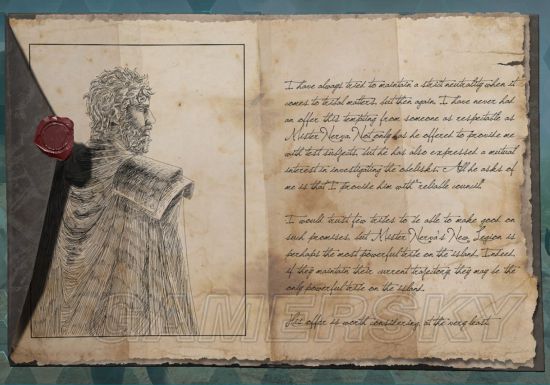 I have always tried to maintain a strict neutrality when it
comes to tribal matters, but then again, I have never had
an offer this tempting from someone as respectable as
Mister Nerva. Not only has he offered to provide me
with test subjects, but he has also expressed a mutual
interest in investigating the obelisks. All he asks of
me is that I provide him with "reliable council."
I would trust few tribes to be able to make good on
such promises, but Mister Nerva's New Legion is
perhaps the most powerful tribe on the island. Indeed,
if they maintain their current trajectory, they may be the
only powerful tribe on the island.
His offer is worth considering, at the very least.
GAMERSKY